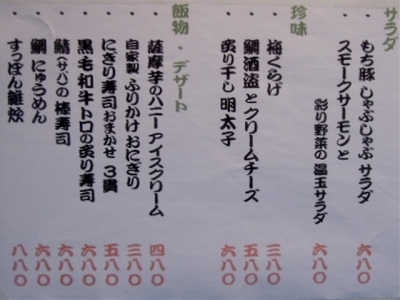 サラダ
・もち豚しゃぶしゃぶサラダ 六八〇
・スモークサーモンと
彩り野菜の温玉サラダ 六八〇
珍味
・梅くらげ 三八〇
・鯛酒盗とクリームチーズ 五八〇
・炙り干し明太子 六八〇
飯物・デザート
・薩摩芋のハニーアイスクリーム 四八〇
・自家製ふりかけおにぎり 三八〇
・にぎり寿司おまかせ3貫 五八〇
・黒毛和牛トロの炙り寿司 六八〇
・鯖(サバ)の棒寿司 六八〇
・鯛にゅうめん 六八〇
・すっぽん雑炊 八八〇